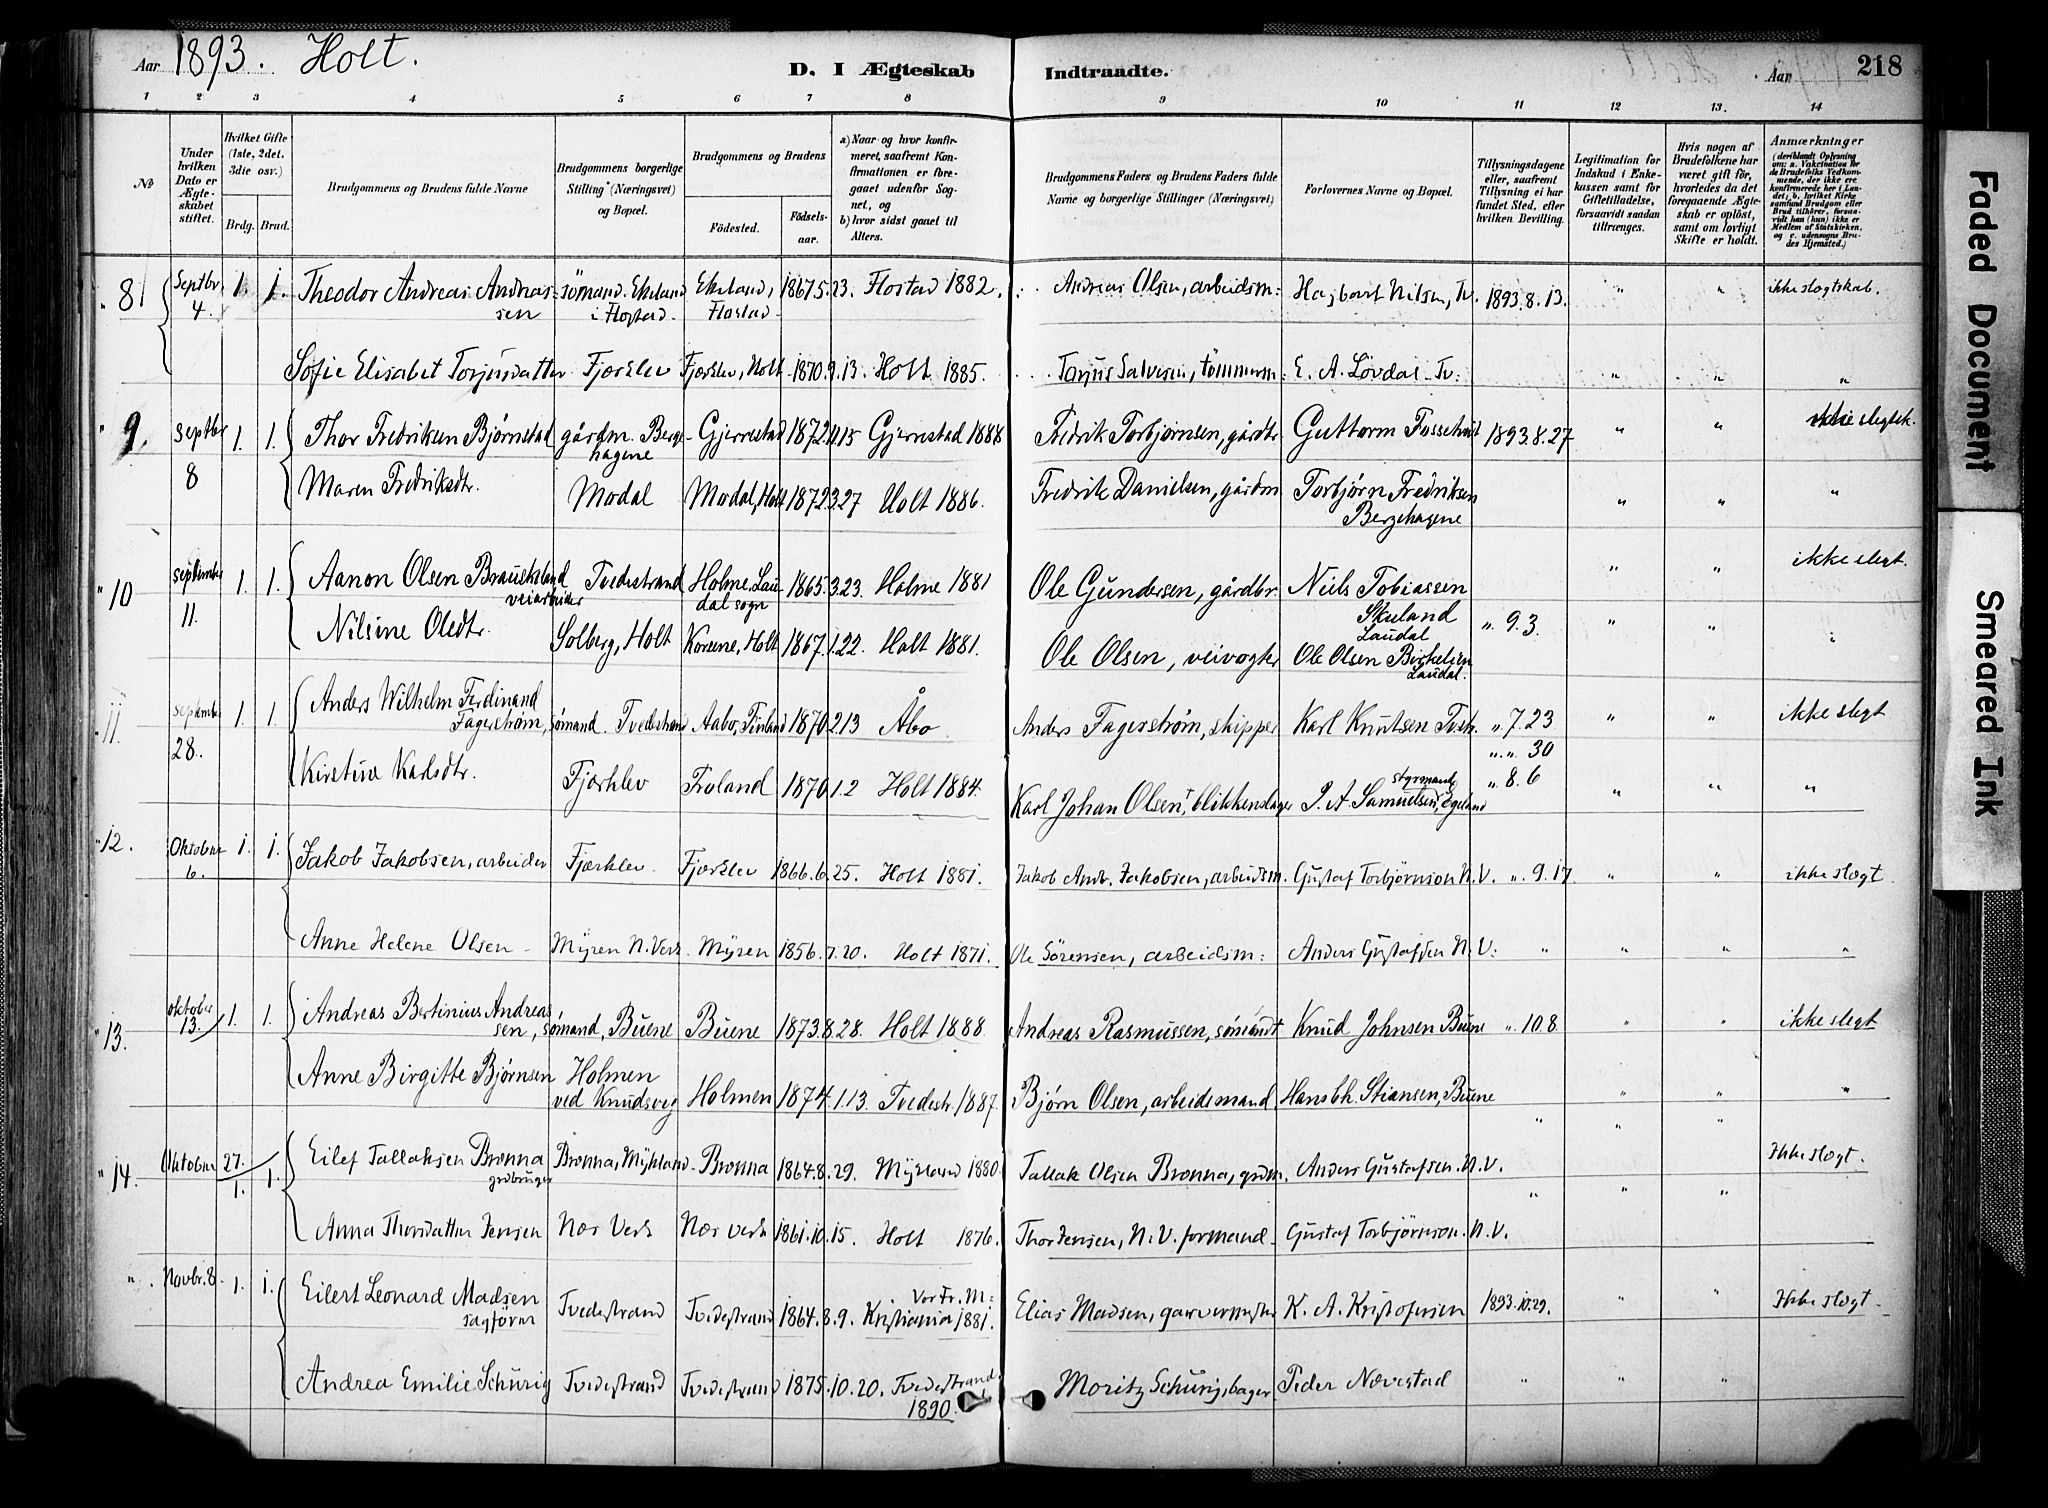 Aar 1893. Holt.
D. I Ægteskab Indtraadte.
Aar 218
1 2 3 4 5 6 7 8 9 10 11 12 13. 14
№
Under hvilken Dato er Ægteskabet stiftet.
Hvilket Gifte (1ste, 2det, 3die osv.)
Brdg. Brud.
Brudgommens og Brudens fulde Navne
Brudgommens borgerlige Stilling (Næringsvei) og Bopæl.
Brudgommens og Brudens
Fødested.
Fødselsaar.
a) Naar og hvor konfirmeret, saafremt Konfirmationen er foregaaet udenfor Sognet, og
b) hvor sidst gaaet til Alters.
Brudgommens Faders og Brudens Faders fulde Navne og borgerlige Stillinger (Næringsvei)
Forlovernes Navne og Bopæl.
Tillysningsdagene eller, saafremt Tillysning ei har fundet Sted, efter hvilken Bevilling.
Legitimation for Indskud i Enkekassen samt for Giftetilladelse, forsaavidt saadan tiltrænges.
Hvis nogen af Brudefolkene har været gift før, hvorledes da det foregaaende Ægteskab er opløst, samt om lovligt Skifte er holdt.
Anmærkninger
(deriblandt Oplysning om: a. Vakcination for de Brudefolks Vedkommende, der ikke ere konfirmerede her i Landet; b. hvilket Kirkesamfund Brudgom eller Brud tilhører, forsaavidt han (hun) ikke er Medlem af Statskirken, og c. udensogns Brudes Hjemsted.)
8 Septbr 4. 1. 1. Theodor Andreas Andreassen sömand. Ekeland i Flostad. Ekeland, Flostad 1867.5.23. Flostad 1882. Andreas Olsen, arbeidsm: Hagbart Nilsen, Tv. 1893.8.13. " " ikke slegtskab.
Sofie Elisabet Torjusdatter Fjærklev Fjærklev, Holt 1870.9.13. Holt 1885. Torjus Salvesen, tömmerm: E. A. Lövdal Tv: " " "
9. Septbr 8 1. 1. Thor Fredriksen Bjørnstad gårdm. Bergehagene Gjerrestad 1872.4.15 Gjerrestad 1888 Fredrik Torbjørnsen, gårdbr. Guttorm Fossetveit 1893.8.27 " " ikke slegtsk.
Maren Fredriksdtr. Modal Modal, Holt 1872.3.27 Holt 1886. Fredrik Danielsen, gårdm Torbjørn Fredriksen Bergehagene " " "
10 September 11. 1. 1. Aanon Olsen Brauteland veiarbeider Tvedestrand Holme, Laudal sogn 1865.3.23. Holme 1881 Ole Gundersen, gårdbr. Niels Tobiassen Skuland Laudal " 9.3. " " ikke slegt.
Nilsine Olsdtr. Solberg, Holt Korsene, Holt 1867.1.22. Holt 1881. Ole Olsen, veivogter Ole Olsen Birkelien Laudal. " " "
11. September 28. 1. 1. Anders Wilhelm Ferdinand Fagerstrøm, sømand. Tvedestrand Aabo, Finland 1870.2.13 Åbo Anders Fagerstrøm, skipper Karl Knutsen Tvstr. " 7.23 " " ikke slegt
" " 30
" 8.6
Kirstine Karlsdtr. Fjærklev Froland 1870.1.2 Holt 1884. Karl Johan Olsen, blikkenslager P. A. Samuelsen, styrmand Egeland " " "
12. Oktober 6. 1. 1. Jakob Jakobsen, arbeider Fjærklev Fjærklev 1866.6.25. Holt 1881. Jakob Andr. Jakobsen, arbeidsm. Gustaf Torbjørnson N.V. " 9.17. " " ikke slegt.
Anne Helene Olsen Myren N. Verk Myren 1856.7.20. Holt 1871. Ole Sørensen, arbeidsm: Anders Gustafsen N.V: " " " "
13. Oktober 13. 1. 1. Andreas Bertinius Andreassen, sømand, Buene Buene 1873.8.28. Holt 1888 Andreas Rasmussen, sømand Knud Johnsen Buene " 10.8. " " ikke slegt
Anne Birgitte Bjørnsen Holmen ved Knudsveg Holmen 1874.1.13. Tvedestr. 1887. Bjørn Olsen, arbeidsmand. Hans Stiansen, Buene " " " "
14. Oktober 27. 1. 1. Eilef Tallaksen Brønna Brønna, Mykland Brønna 1864.8.29. Mykland 1880. Tallak Olsen Brønna, grdm. Anders Gustafsen. N.V. " " " Ikke slegt.
Anna Thorsdatter Jensen Næs Verk Næs verk 1861.10.15. Holt 1876. Thor Jensen, N.V. formand Gustaf Torbjørnson. N.V.
". Novbr. 8. 1. 1. Eilert Leonard Madsen sagfører Tvedestrand Tvedestrand 1864.8.9. Vor Fr. M: Kristiania 1881. Elias Madsen, garvermester K. A. Kristofersen 1893.10.29. " " Ikke slegt
Andrea Emilie Schurig Tvedestrand Tvedestrand 1875.10.20. Tvedestrand. 1890. Moritz Schurig, bager Peder Nævestad " " "
Faded Document
Smeared Ink